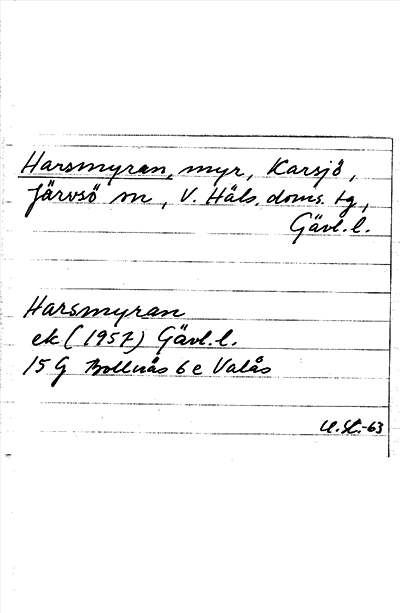 Harsmyran, myr, Karsjö,
Järvsö sn, V. Häls. doms. tg,
Gävl. l.
Harsmyran
ek (1957) Gävl. l.
15 G Bollnäs 6 e Valås
U. St.-63